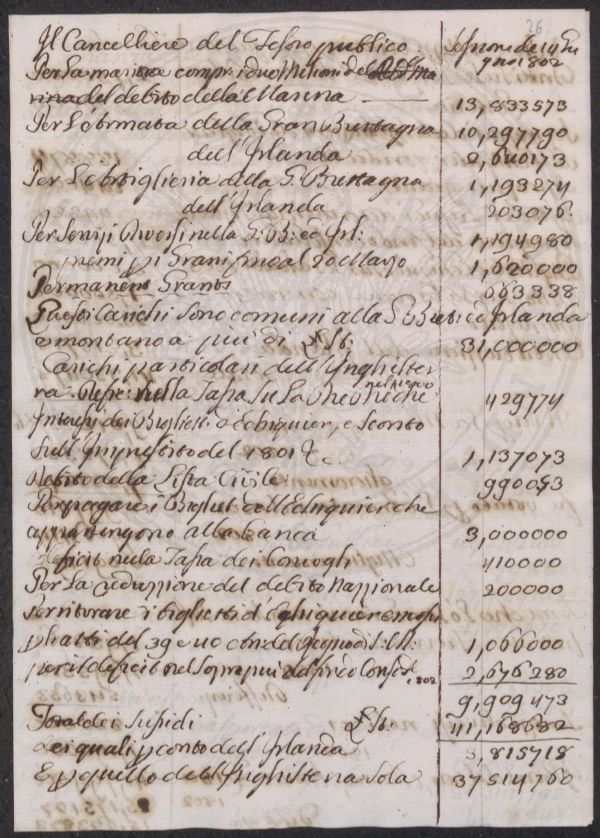 26
Il Cancelliere del Tesoro publico.
Per la marina compresi due Milioni del
rina del debito della Marina 13,833573
Per l'Armata della Gran Bretagna 10,297790
dell'Irlanda 2,640173
Per l'Artiglieria della G. Bretagna 1,193274
dell'Irlanda 203076
Per Servizi diversi nella G: B: ed Irl: 1,194980
premi pi Grani fino al 20 Mayo 1,620000
Permanent Grants 663338
Questi Carichi sono comuni alla G Bret: e Irlanda
e montano a più di L St: 31,000000
Carichi particolari dell'Inghilter
ra. nella Tassa su la 429774
dei Biglietti d'Echiquier, e Sconto
sull'Imprestito del 1801 &c. 1,137073
Debito della Lista Civile 990053
Per pagare i Bigliet: dell'Echiquier che
appartengono alla banca 3,000000
deficit nella Tassa dei Convogli 410000
Per la reduzzione del debito Nazzionale 200000
per ritirare i biglietti d'Echiquier
del 39 e 40 1,066000
per il deficit nel 1802 2,676280
9,909473
Total dei Susidi L St: 41,168682
dei quali p conto dell'Irlanda 3,815718
E p quello dell'Inghilterra sola 37514760